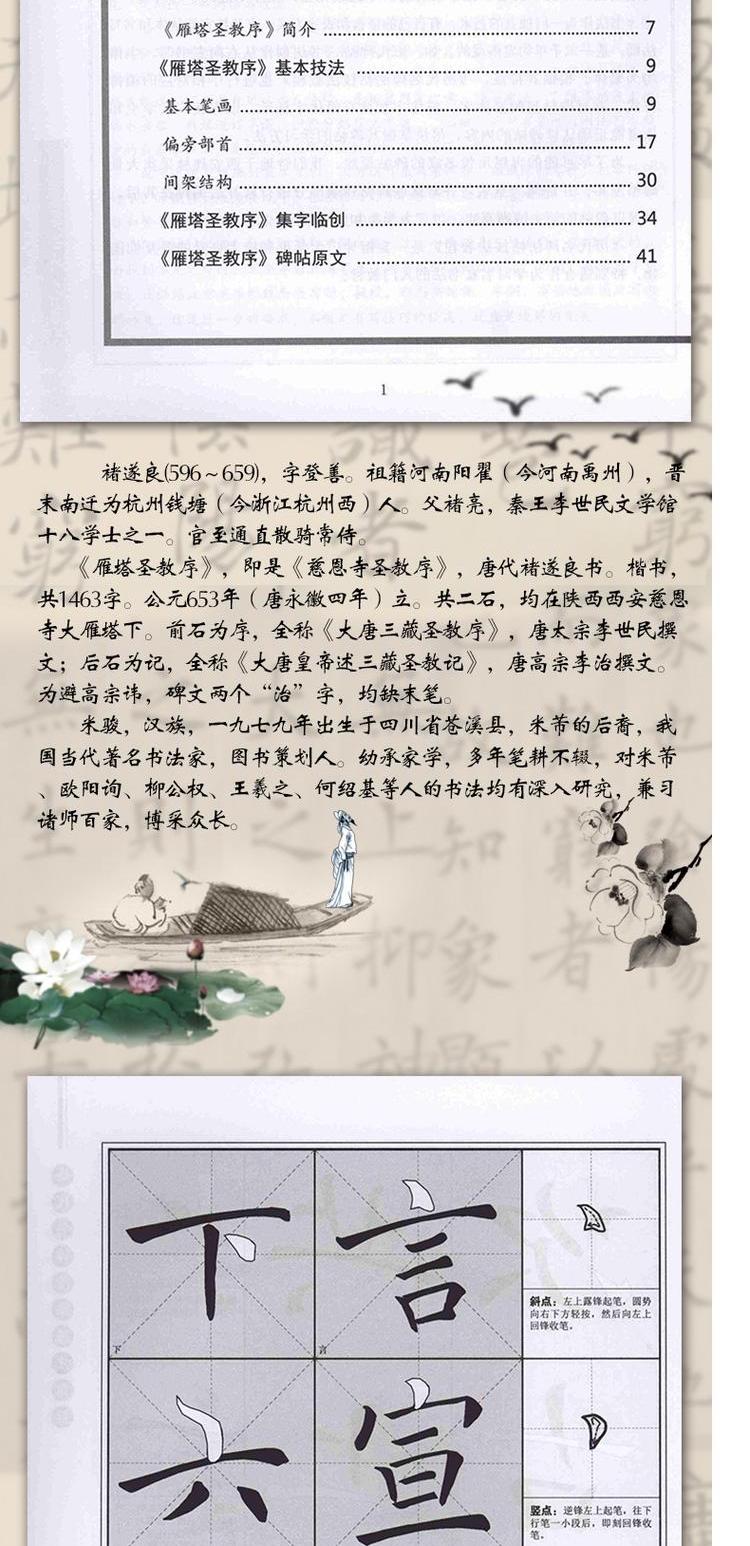 《雁塔圣教序》简介 ................ 7
《雁塔圣教序》基本技法 ................ 9
基本笔画 ................ 9
偏旁部首 ................ 17
间架结构 ................ 30
《雁塔圣教序》集字临创 ................ 34
《雁塔圣教序》碑帖原文 ................ 41
1
褚遂良(596～659)，字登善。祖籍河南阳翟（今河南禹州），晋
末南迁为杭州钱塘（今浙江杭州西）人。父褚亮，秦王李世民文学馆
十八学士之一。官至通直散骑常侍。
《雁塔圣教序》，即是《慈恩寺圣教序》，唐代褚遂良书。楷书，
共1463字。公元653年（唐永徽四年）立。共二石，均在陕西西安慈恩
寺大雁塔下。前石为序，全称《大唐三藏圣教序》，唐太宗李世民撰
文；后石为记，全称《大唐皇帝述三藏圣教记》，唐高宗李治撰文。
为避高宗讳，碑文两个“治”字，均缺末笔。
米骏，汉族，一九七九年出生于四川省苍溪县，米芾的后裔，我
国当代著名书法家，图书策划人。幼承家学，多年笔耕不辍，对米芾
、欧阳询、柳公权、王羲之、何绍基等人的书法均有深入研究，兼习
诸师百家，博采众长。
下 言
斜点：左上露锋起笔，圆势
向右下方轻按，然后向左上
回锋收笔。
下 言
六 宣
竖点：逆锋左上起笔，往下
行笔一小段后，即刻回锋收
笔。